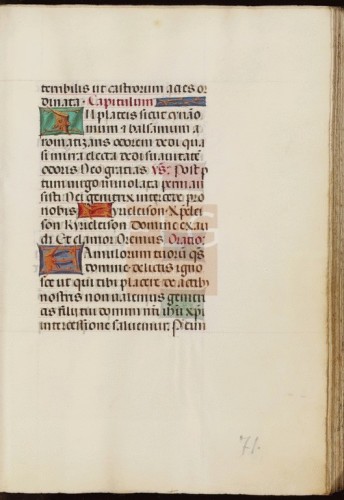 terribilis ut castrorum acies or
dinata. Capitulum
In plateis sicut cynão
momum & balsamum a
romatizans odorem dedi qua
si mirra electa dedi suavitatē
odoris Deo gratias Vs: Post p
tum virgo inviolata perman
sisti Dei genitrix intercede pro
nobis Kyrieleison Xpelei
son Kyrieleison domine exau
di Et clamor Oremus Oratio:
Famulorum tuorū qs
domine delictis igno
sce ut qui tibi placere de actibꝰ
nostris non valemus geniti
cis filij tui domini nrī ihū xpi
intercessione salvemur. Per eun
71